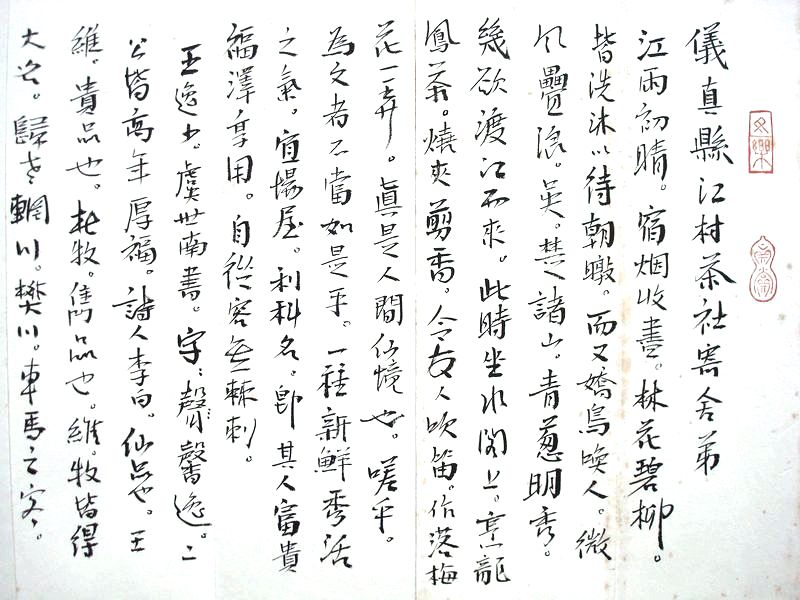 儀真縣江村茶社寄舍弟
江雨初晴。宿烟收盡。林花碧柳。
皆洗沐以待朝暾。而又嬌鳥喚人。微
風疊浪。吳。楚諸山。青葱明秀。
幾欲渡江而來。此時坐水閣上。烹龍
鳳茶。燒夾剪香。令友人吹笛。作落梅
花一弄。真是人間仙境也。嗟乎。
為文者不當如是乎。一種新鮮秀活
之氣。宜場屋。利科名。即其人富貴
福澤享用。自從容無棘刺。
王逸少。虞世南書。字字馨逸。二
公皆高年厚福。詩人李白。仙品也。王
維。貴品也。杜牧。雋品也。維。牧皆得
大名。歸老輞川。樊川。車馬之客。